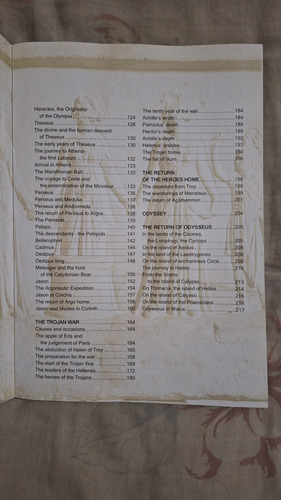 Heracles, the Originator
of the Olympia 124
Theseus 128
The divine and the human descent
of Theseus 130
The early years of Theseus 130
The journey to Athens-
the first Labours 132
Arrival in Athens 133
The Marathonian Bull 133
The voyage to Crete and
the extermination of the Minotaur 133
Perseus 136
Perseus and Medusa 137
Perseus and Andromeda 138
The return of Perseus to Argos 138
The Perseids 139
Pelops 140
The descendants - the Pelopids 141
Bellerophon 142
Cadmus 144
Oedipus 147
Oedipus king 148
Meleager and the hunt
of the Calydonian Boar 150
Jason 152
The Argonautic Expedition 154
Jason at Colchis 157
The return of Argo home 158
Jason and Medea in Corinth 160
THE TROJAN WAR 164
Causes and occasions 164
The apple of Eris and
the judgement of Paris 164
The abduction of Helen of Troy 165
The preparation for the war 168
The start of the Trojan War 169
The leaders of the Hellenes 172
The heroes of the Trojans 180
The tenth year of the war 184
Achille's wrath 184
Patroclus' death 188
Hector's death 189
Achille's death 192
Helenus' oracles 193
The Trojan horse 194
The fall of Ilium 196
THE RETURN
OF THE HEROES HOME 198
The departure from Troy 198
The wanderings of Menelaus 199
The return of Agamemnon 201
ODYSSEY 204
THE RETURN OF ODYSSEUS 205
In the lands of the Cicones,
the Lotophagi, the Cyclops 205
On the island of Aeolus 208
In the land of the Laestrygones 208
On the island of enchantress Circe 208
The journey to Hades 210
From the Sirens
to the island of Calypso 213
On Thrinacia, the island of Helios 214
On the island of Calypso 215
On the island of the Phaeacians 215
Odysseus in Ithaca 217